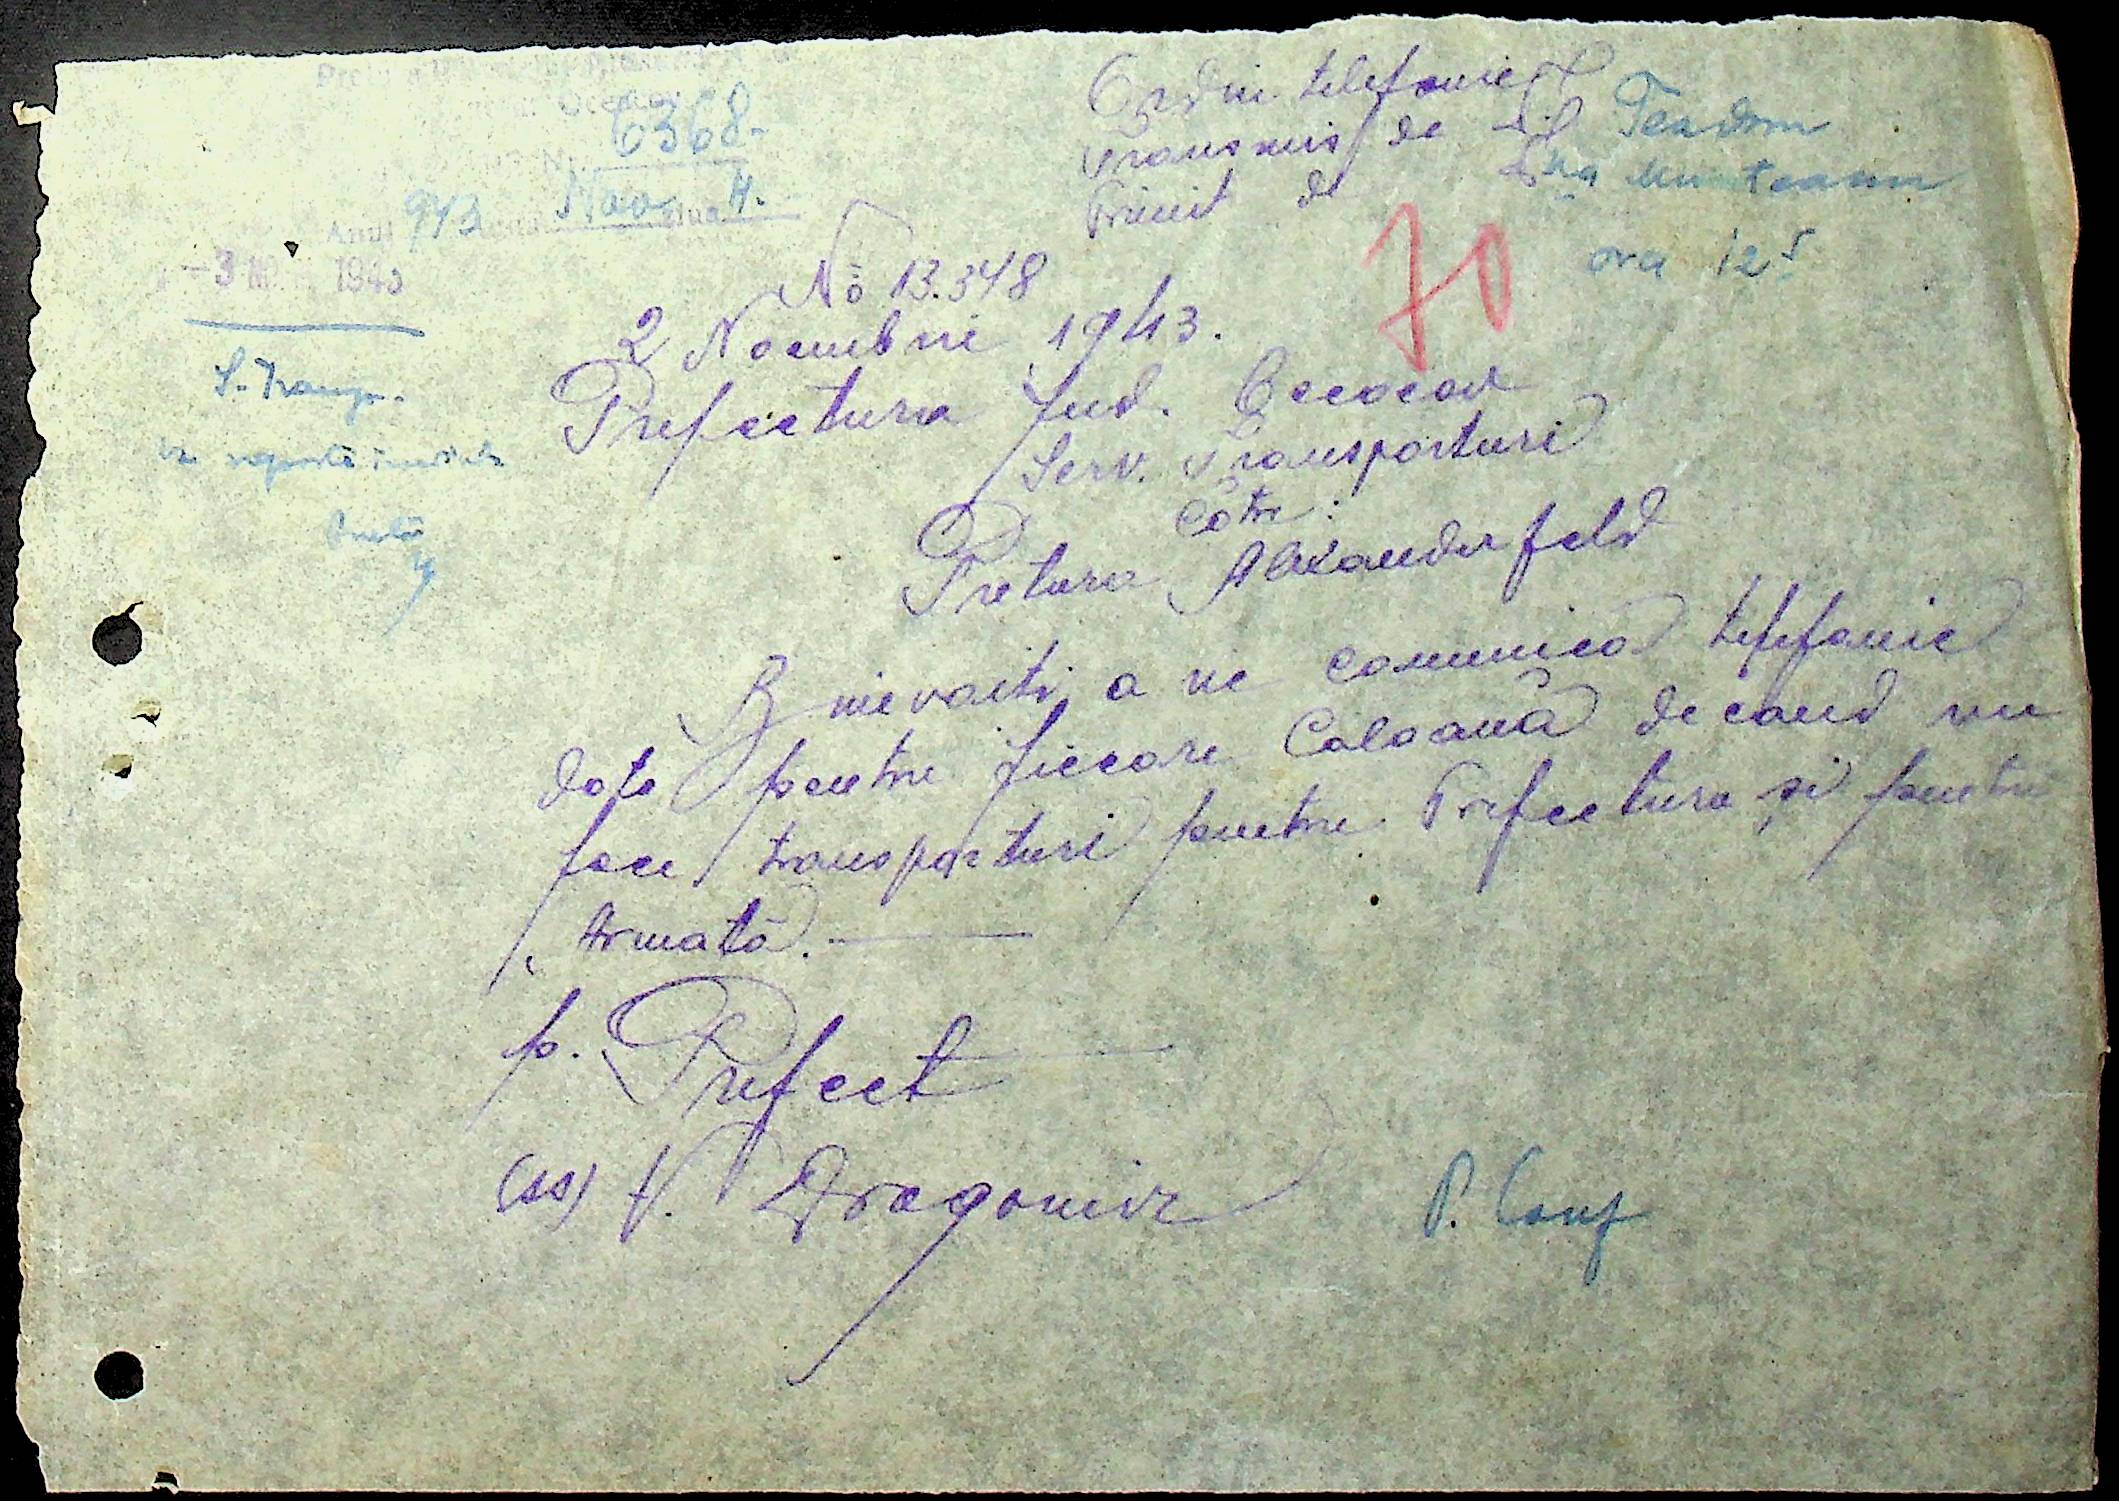 6368.
Anul 943 Nov. 4.
-3 1943
Ordin telefonic
Transmis de Dl Teodor
Primit de Dna Munteanu
ora 12 5
70
No 13.348
2 Noembrie 1943.
Prefectura Jud. Oceacov
Serv. Transporturi
Către:
Pretura Alexanderfeld
S. Transp.
Pretor
Binevoiti a ne comunica telefonic
date pentru fiecare Coloană de cand nu
face transporturi pentru Prefectura și pentru
Armată.
p. Prefect
(ss) V. Dragomir
P. Conf